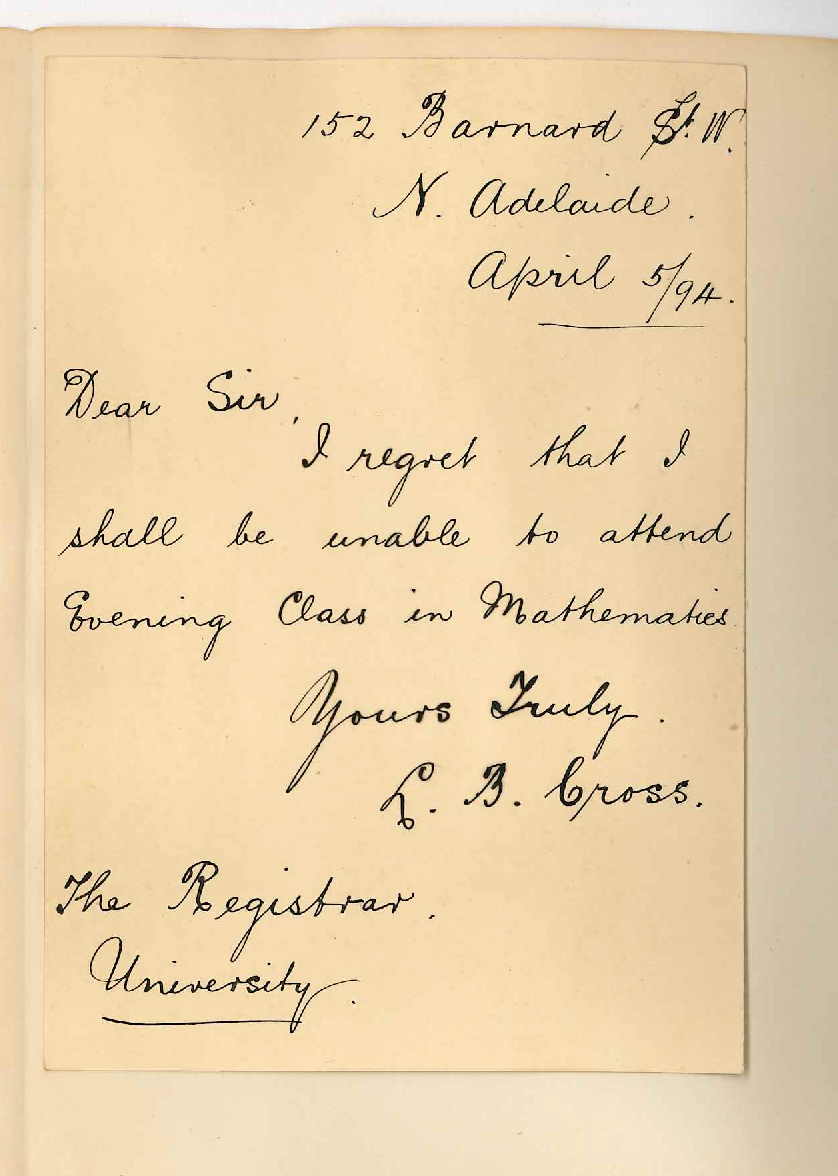 152 Barnard St. W.
N. Adelaide.
April 5/94.
Dear Sir,
I regret that I
shall be unable to attend
Evening Class in Mathematics
Yours Truly.
L. B. Cross.
The Registrar.
University.